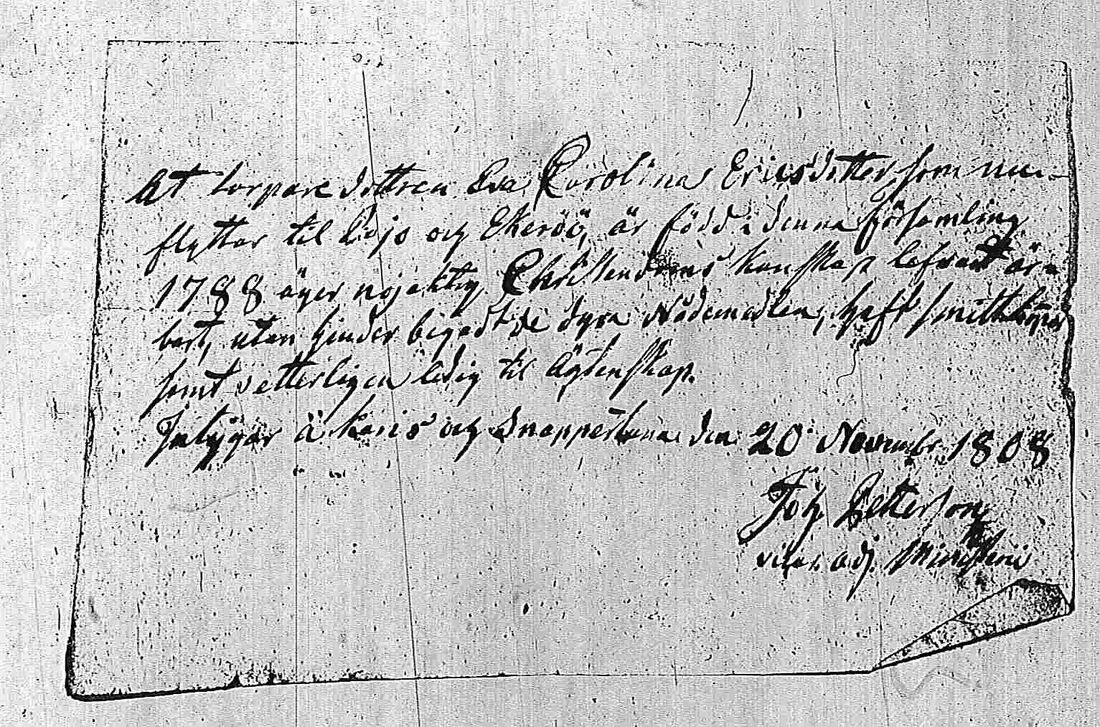 At torpare dottren Eva Carolina Ericsdotter som nu
flyttar til Lidjo och Ekeröö, är född i denna församling
1788 äger nöjaktig Christendoms kunskap lefvat är-
bart, utan hinder begådt de dyra Nådemedlen, haft smittkoppor
samt vetterligen ledig til ägtenskap.
Intygar å Karis och Snappertuna den 20 Novembr 1808
Joh Petterson
vice adj. Ministerii